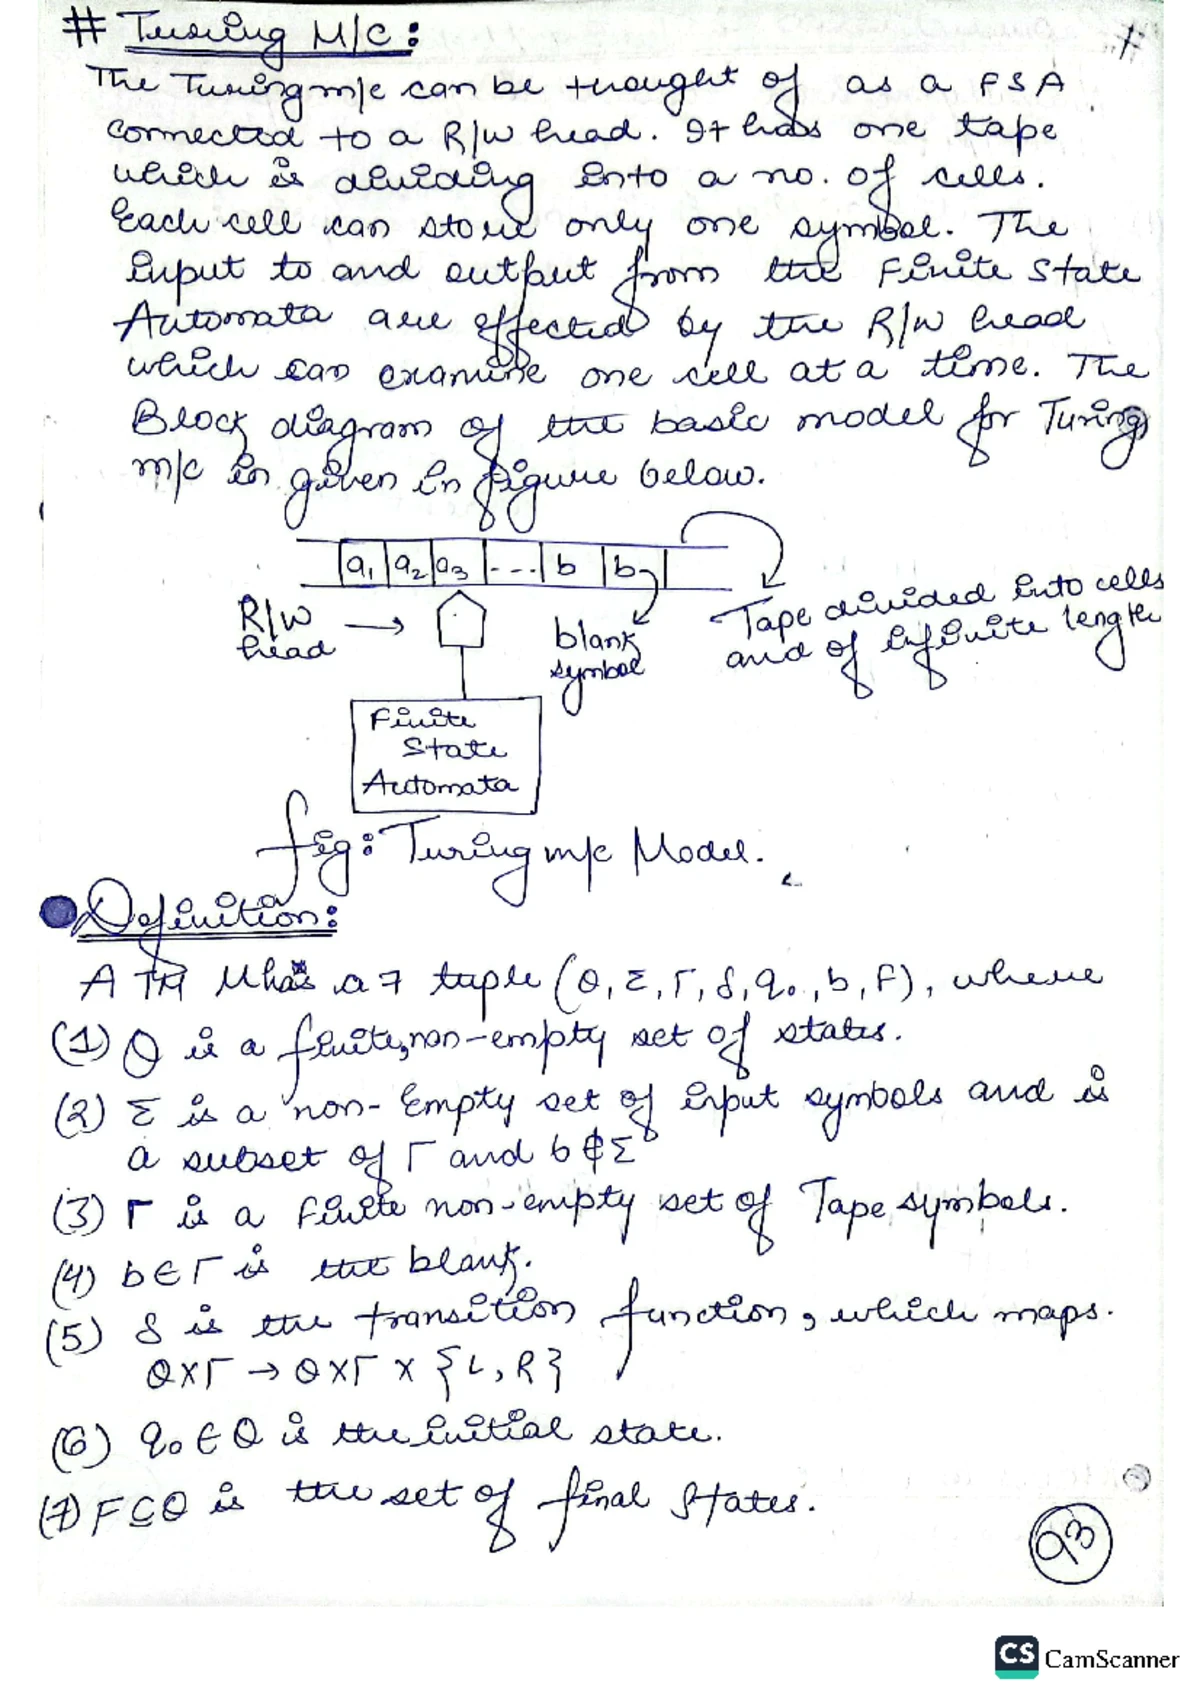 # Turing M/C:
The Turing m/c can be thought of as a FSA
connected to a R/W head. It has one tape
which is dividing into a no. of cells.
Each cell can store only one symbol. The
input to and output from the Finite State
Automata are effected by the R/W head
which can examine one cell at a time. The
Block diagram of the basic model for Turing
m/c in given in figure below.
a1 a2 a3 ... b b
R/W head
blank symbol
Tape divided into cells
and of infinite length
Finite
State
Automata
fig: Turing m/c Model.
Definition:
A TM M has a 7 tuple (Q, Σ, Γ, δ, q0, b, F), where
(1) Q is a finite, non-empty set of states.
(2) Σ is a non-Empty set of input symbols and is
a subset of Γ and b ∉ Σ
(3) Γ is a finite non-empty set of Tape symbols.
(4) b ∈ Γ is the blank.
(5) δ is the transition function, which maps.
Q × Γ → Q × Γ × {L, R}
(6) q0 ∈ Q is the initial state.
(7) F ⊆ Q is the set of final States.
93
CS CamScanner